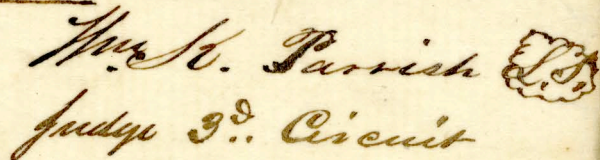 Wm. K. Parrish L.S.
Judge 3d. Circuit